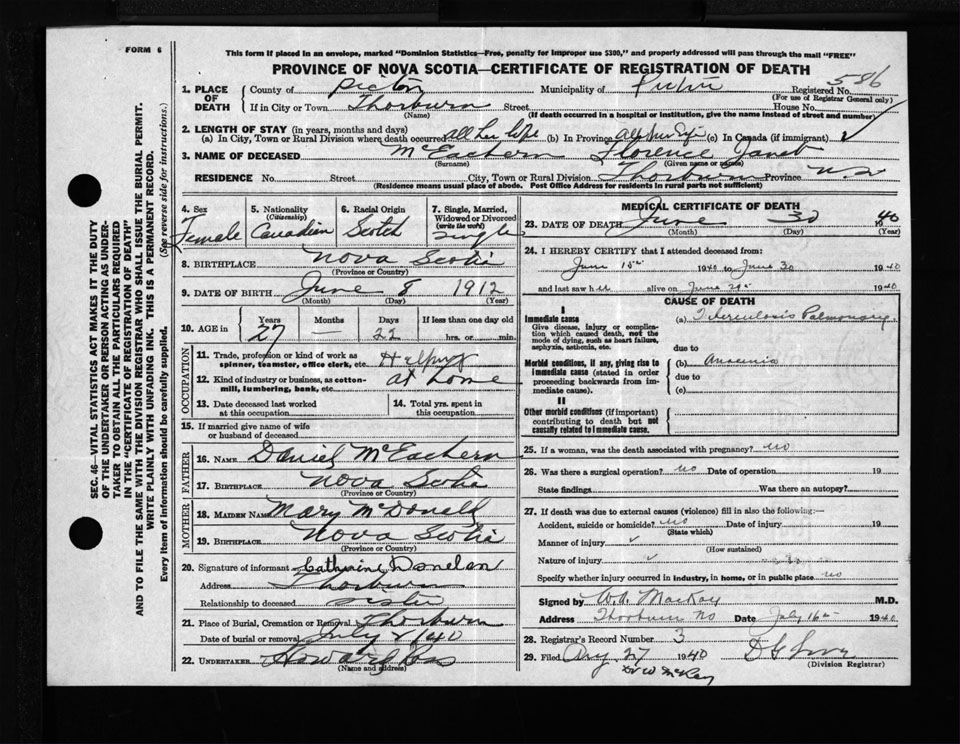 FORM 6
This form if placed in an envelope, marked "Dominion Statistics—Free, penalty for improper use $300," and properly addressed will pass through the mail "FREE"
PROVINCE OF NOVA SCOTIA—CERTIFICATE OF REGISTRATION OF DEATH
1. PLACE OF DEATH
County of Pictou Municipality of Pictou Registered No. 586
(For use of Registrar General only)
If in City or Town Thorburn Street House No.
(Name) (If death occurred in a hospital or institution, give the name instead of street and number)
2. LENGTH OF STAY (in years, months and days)
(a) In City, Town or Rural Division where death occurred all her life (b) In Province all her life (c) In Canada (if immigrant)
3. NAME OF DECEASED McEachern Florence Janet
(Surname) (Given name or names)
RESIDENCE No. Street City, Town or Rural Division Thorburn Province N.S.
(Residence means usual place of abode. Post Office Address for residents in rural parts not sufficient)
4. Sex Female
5. Nationality (Citizenship) Canadian
6. Racial Origin Scotch
7. Single, Married, Widowed or Divorced (write the word) Single
8. BIRTHPLACE Nova Scotia
(Province or Country)
9. DATE OF BIRTH June 8 1912
(Month) (Day) (Year)
10. AGE in Years Months Days If less than one day old
27 — 22 hrs. or min.
OCCUPATION
11. Trade, profession or kind of work as spinner, teamster, office clerk, etc. Helping
12. Kind of industry or business, as cotton-mill, lumbering, bank, etc. at home
13. Date deceased last worked at this occupation
14. Total yrs. spent in this occupation
15. If married give name of wife or husband of deceased
FATHER
16. NAME Daniel McEachern
17. BIRTHPLACE Nova Scotia
(Province or Country)
MOTHER
18. MAIDEN NAME Mary McDonald
19. BIRTHPLACE Nova Scotia
(Province or Country)
20. Signature of informant Catherine Donelan
Address Thorburn
Relationship to deceased sister
21. Place of Burial, Cremation or Removal Thorburn
Date of burial or removal July 2/40
22. UNDERTAKER Howard Ross
(Name and address)
MEDICAL CERTIFICATE OF DEATH
23. DATE OF DEATH June 30 40
(Month) (Day) (Year)
24. I HEREBY CERTIFY that I attended deceased from:
June 15th 1940 to June 30 1940
and last saw her alive on June 1940
CAUSE OF DEATH
I
Immediate cause
Give disease, injury or complication which caused death, not the mode of dying, such as heart failure, asphyxia, asthenia, etc.
(a) Tuberculosis Pulmonary
due to
Morbid conditions, if any, giving rise to immediate cause (stated in order proceeding backwards from immediate cause).
(b) Anaemia
due to
(c)
II
Other morbid conditions (if important) contributing to death but not causally related to immediate cause.
25. If a woman, was the death associated with pregnancy? no
26. Was there a surgical operation? no Date of operation 19
State findings Was there an autopsy?
27. If death was due to external causes (violence) fill in also the following:—
Accident, suicide or homicide? no Date of injury 19
(State which)
Manner of injury
(How sustained)
Nature of injury
Specify whether injury occurred in industry, in home, or in public place no
Signed by W.A. MacKay M.D.
Address Thorburn NS Date July 16th 1940
28. Registrar's Record Number 3
29. Filed Aug 27 1940
(Division Registrar)
Dr W McKay
SEC. 46—VITAL STATISTICS ACT MAKES IT THE DUTY
OF THE UNDERTAKER OR PERSON ACTING AS UNDER-
TAKER TO OBTAIN ALL THE PARTICULARS REQUIRED
IN THE "CERTIFICATE OF REGISTRATION OF DEATH"
AND TO FILE THE SAME WITH THE DIVISION REGISTRAR WHO SHALL ISSUE THE BURIAL PERMIT.
WRITE PLAINLY WITH UNFADING INK. THIS IS A PERMANENT RECORD.
Every item of information should be carefully supplied. (See reverse side for instructions.)